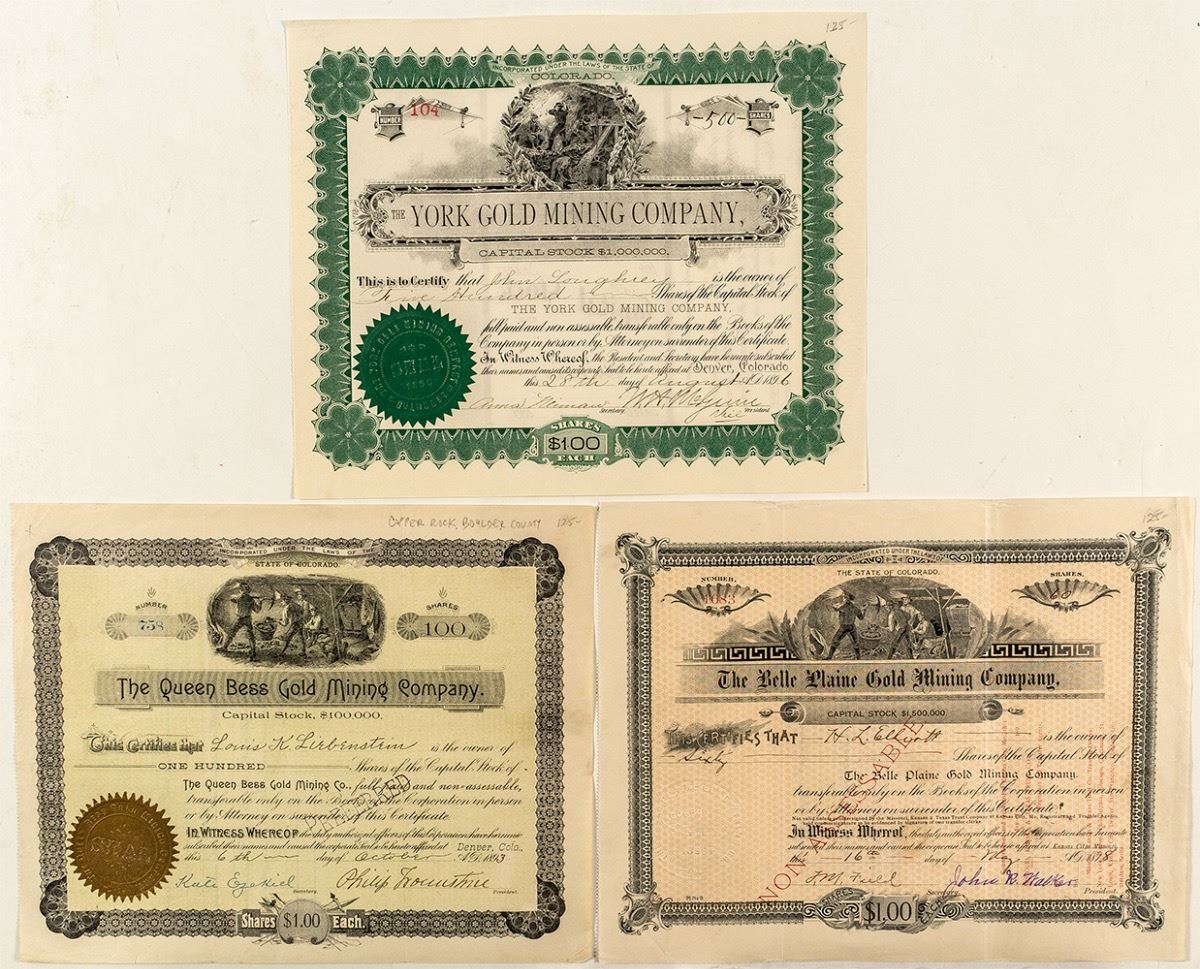 125-
INCORPORATED UNDER THE LAWS OF THE STATE OF
COLORADO.
NUMBER
104
-500-
SHARES
THE YORK GOLD MINING COMPANY,
CAPITAL STOCK $1,000,000.
This is to Certify that John Loughrey is the owner of
Five Hundred Shares of the Capital Stock of
THE YORK GOLD MINING COMPANY,
full paid and non assessable, transferable only on the Books of the
Company in person or by Attorney on surrender of this Certificate.
In Witness Whereof, the President and Secretary have hereunto subscribed
their names and caused its corporate Seal to be hereto affixed at Denver, Colorado
this 28th day of August A.D. 1896
SEAL
Anna Secretary. Vice President
SHARES
$1.00
EACH
COPPER ROCK, BOULDER COUNTY 125-
INCORPORATED UNDER THE LAWS OF THE
STATE OF COLORADO.
NUMBER
758
SHARES
100
The Queen Bess Gold Mining Company.
Capital Stock, $100,000.
This Certifies that Louis K. Liebenstein is the owner of
ONE HUNDRED Shares of the Capital Stock of
The Queen Bess Gold Mining Co., full paid and non-assessable,
transferable only on the Books of the Corporation in person
or by Attorney on surrender of this Certificate.
In Witness Whereof the duly authorized officers of this Corporation have hereunto
subscribed their names and caused the corporate Seal to be hereto affixed at Denver, Colo.,
this 6th day of October A.D. 1893
Kate Ezekiel Secretary. Philip President.
Shares $1.00 Each.
125-
INCORPORATED UNDER THE LAWS OF
THE STATE OF COLORADO.
NUMBER.
1083
SHARES.
60
The Belle Plaine Gold Mining Company.
CAPITAL STOCK $1,500,000
THIS CERTIFIES THAT H. L. Elliott is the owner of
Sixty Shares of the Capital Stock of
The Belle Plaine Gold Mining Company.
transferable only on the Books of the Corporation in person
or by Attorney on surrender of this Certificate.
In Witness Whereof, the duly authorized officers of this Corporation have hereunto
subscribed their names and caused the corporate Seal to be hereto affixed at Kansas City, Missouri,
this 16th day of May A.D. 1898
NON-ASSESSABLE
F. M. Field Secretary. John R. Walker President.
SHARES
$1.00